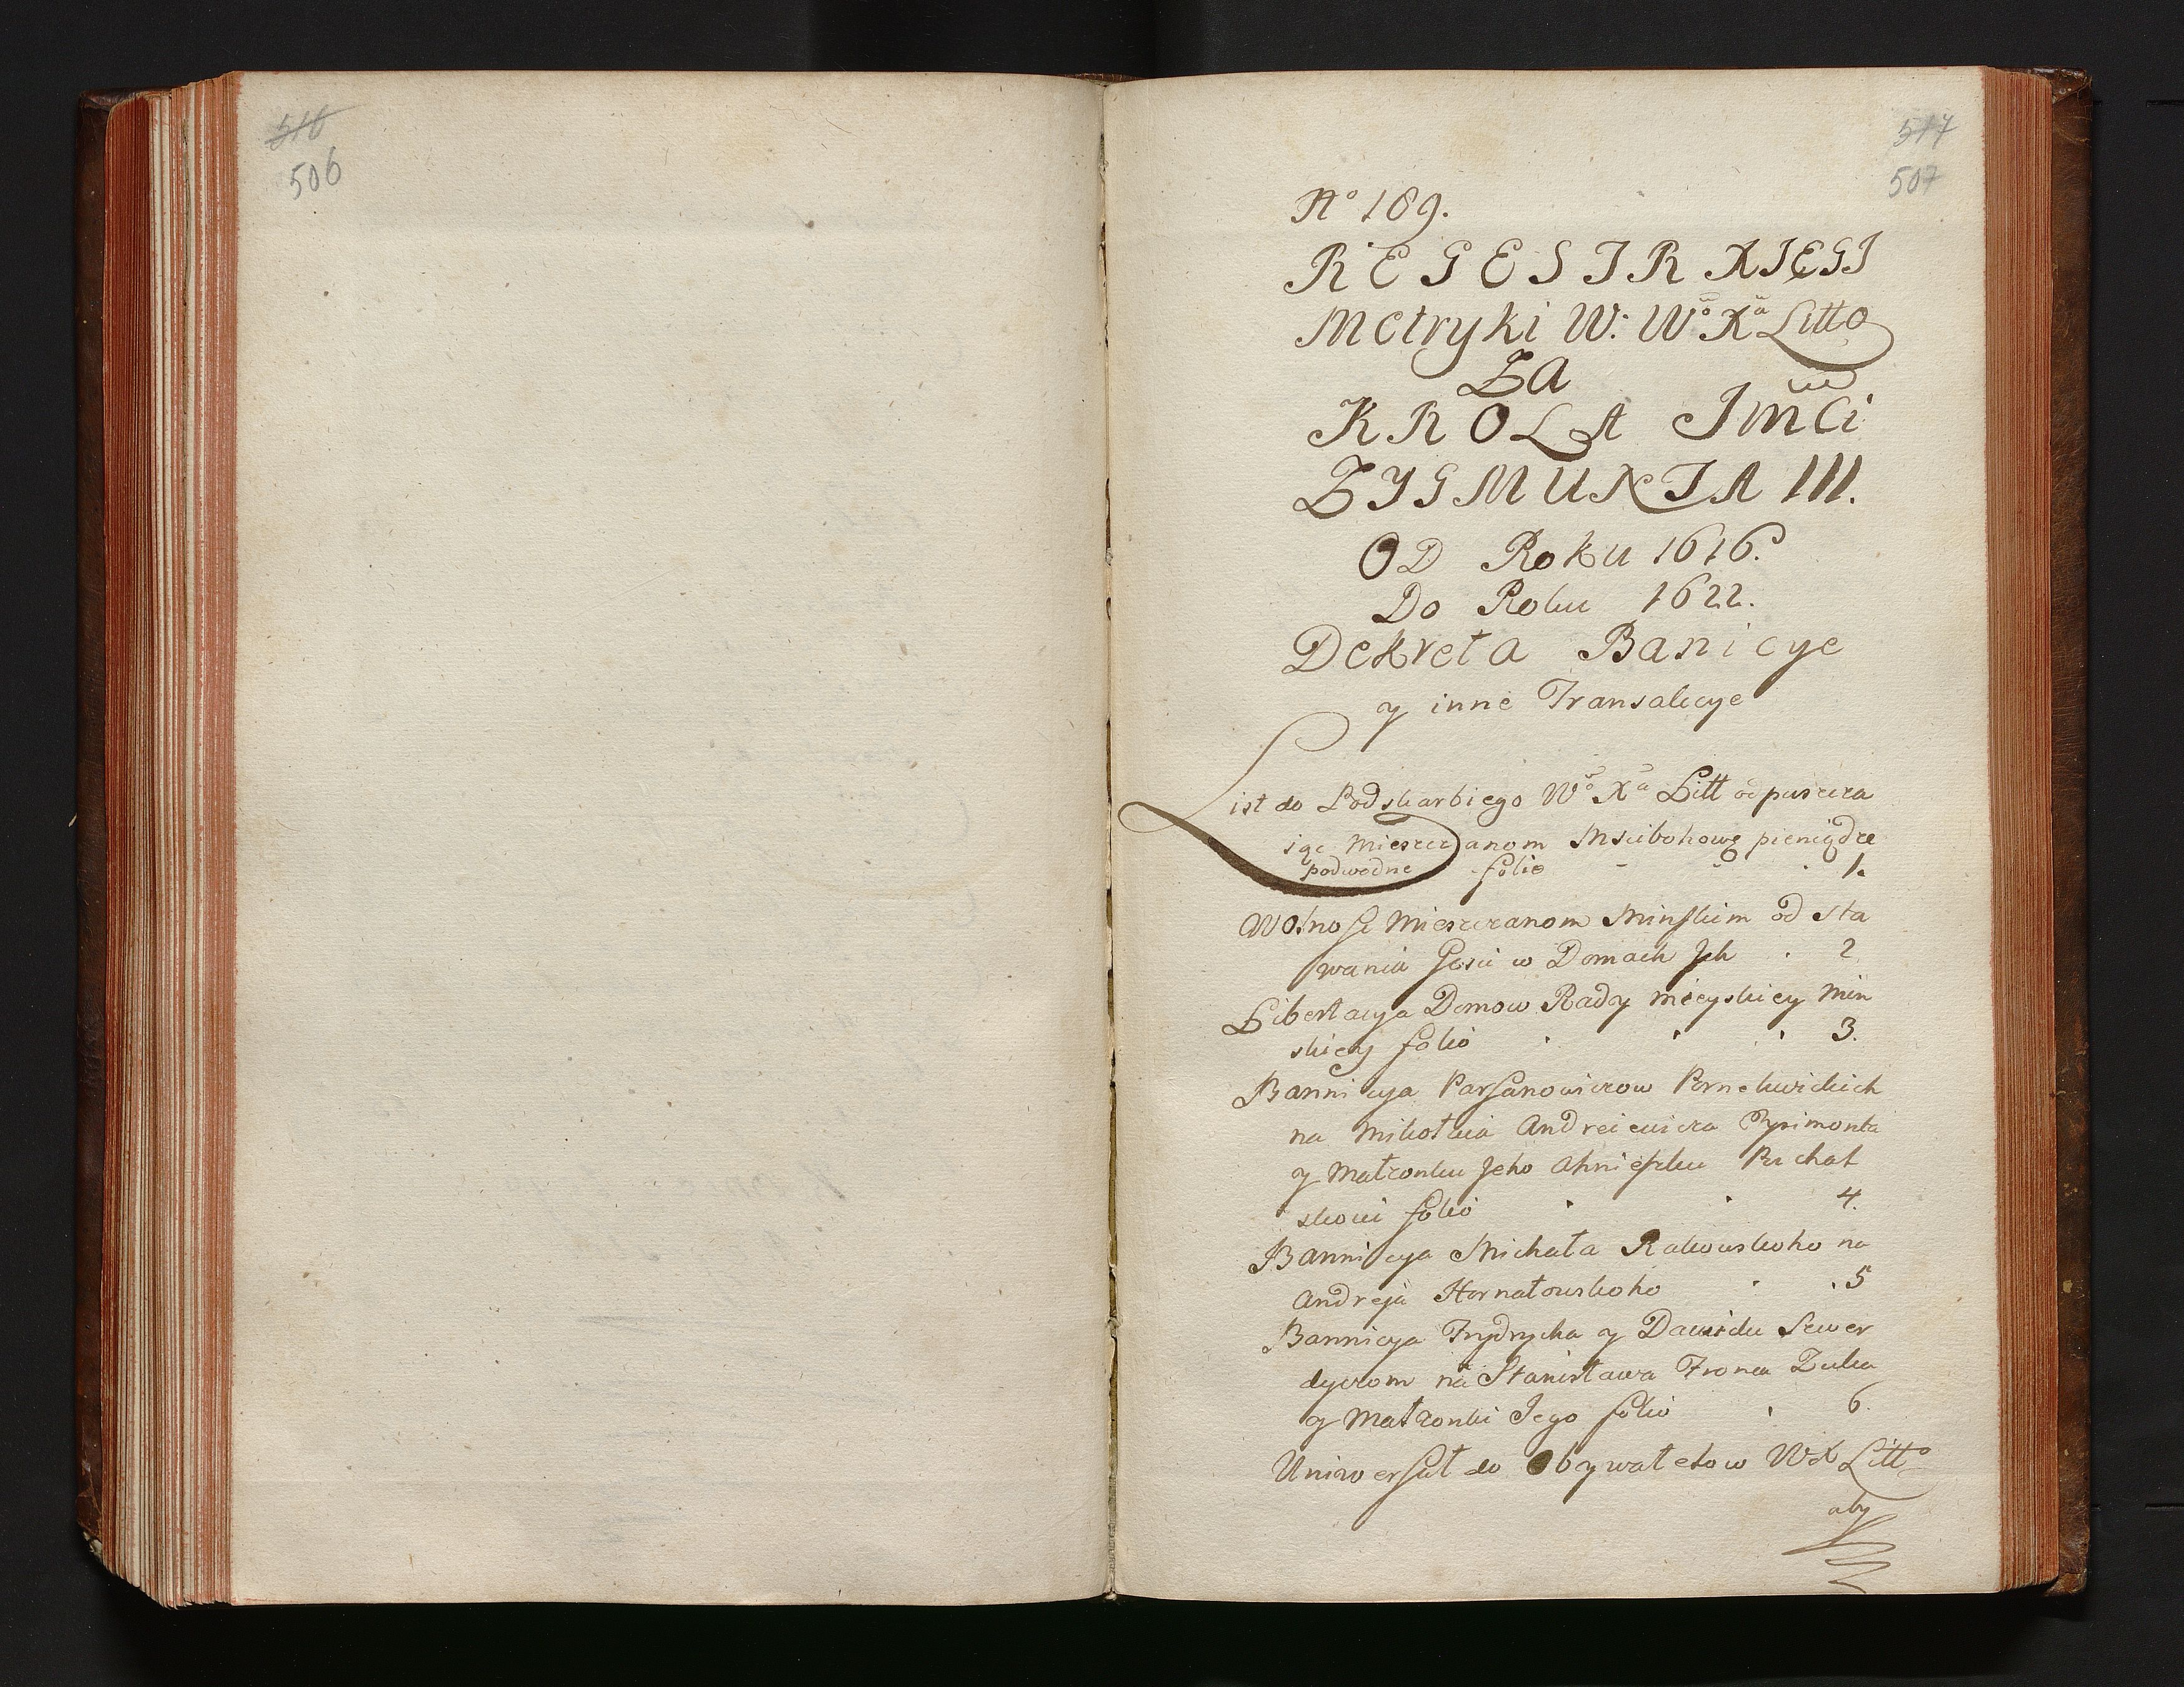 516
506
517
507
No 189.
REGESTR XIĘGI
Metryki W: Wo Xa Litto
ZA
KROLA Jmci
ZYGMUNTA III.
OD Roku 1616.
Do Roku 1622.
Dekreta Banicye
y inne Transakcye
List do Podskarbiego Wo Xa Litt odpuszcza
iąc Mieszczanom Mscibohowę pieniądze
podwodne folio 1.
Wolnosc Mieszczanom Minskim od sta
wania Gosci w Domach Jch . 2
Libertacya Domow Rady mieyskiey Min
skiey folio . . . 3.
Bannicya Parsanowiczow
na Mikołaia Andreiewicza Pysimonta
y Małzonku Jeho Ahnieszku Puchal
skoui folio . . 4.
Bannicya Michała Rakowskoho na
Andreja Hornatowskoho . . 5
Bannicya Frydrycha y Dawidu Szwer
dyczom na Stanisława Fronca Zuka
y Małzonki Jego folio . 6.
Uniwersał do Obywatelow WX Litto
aby